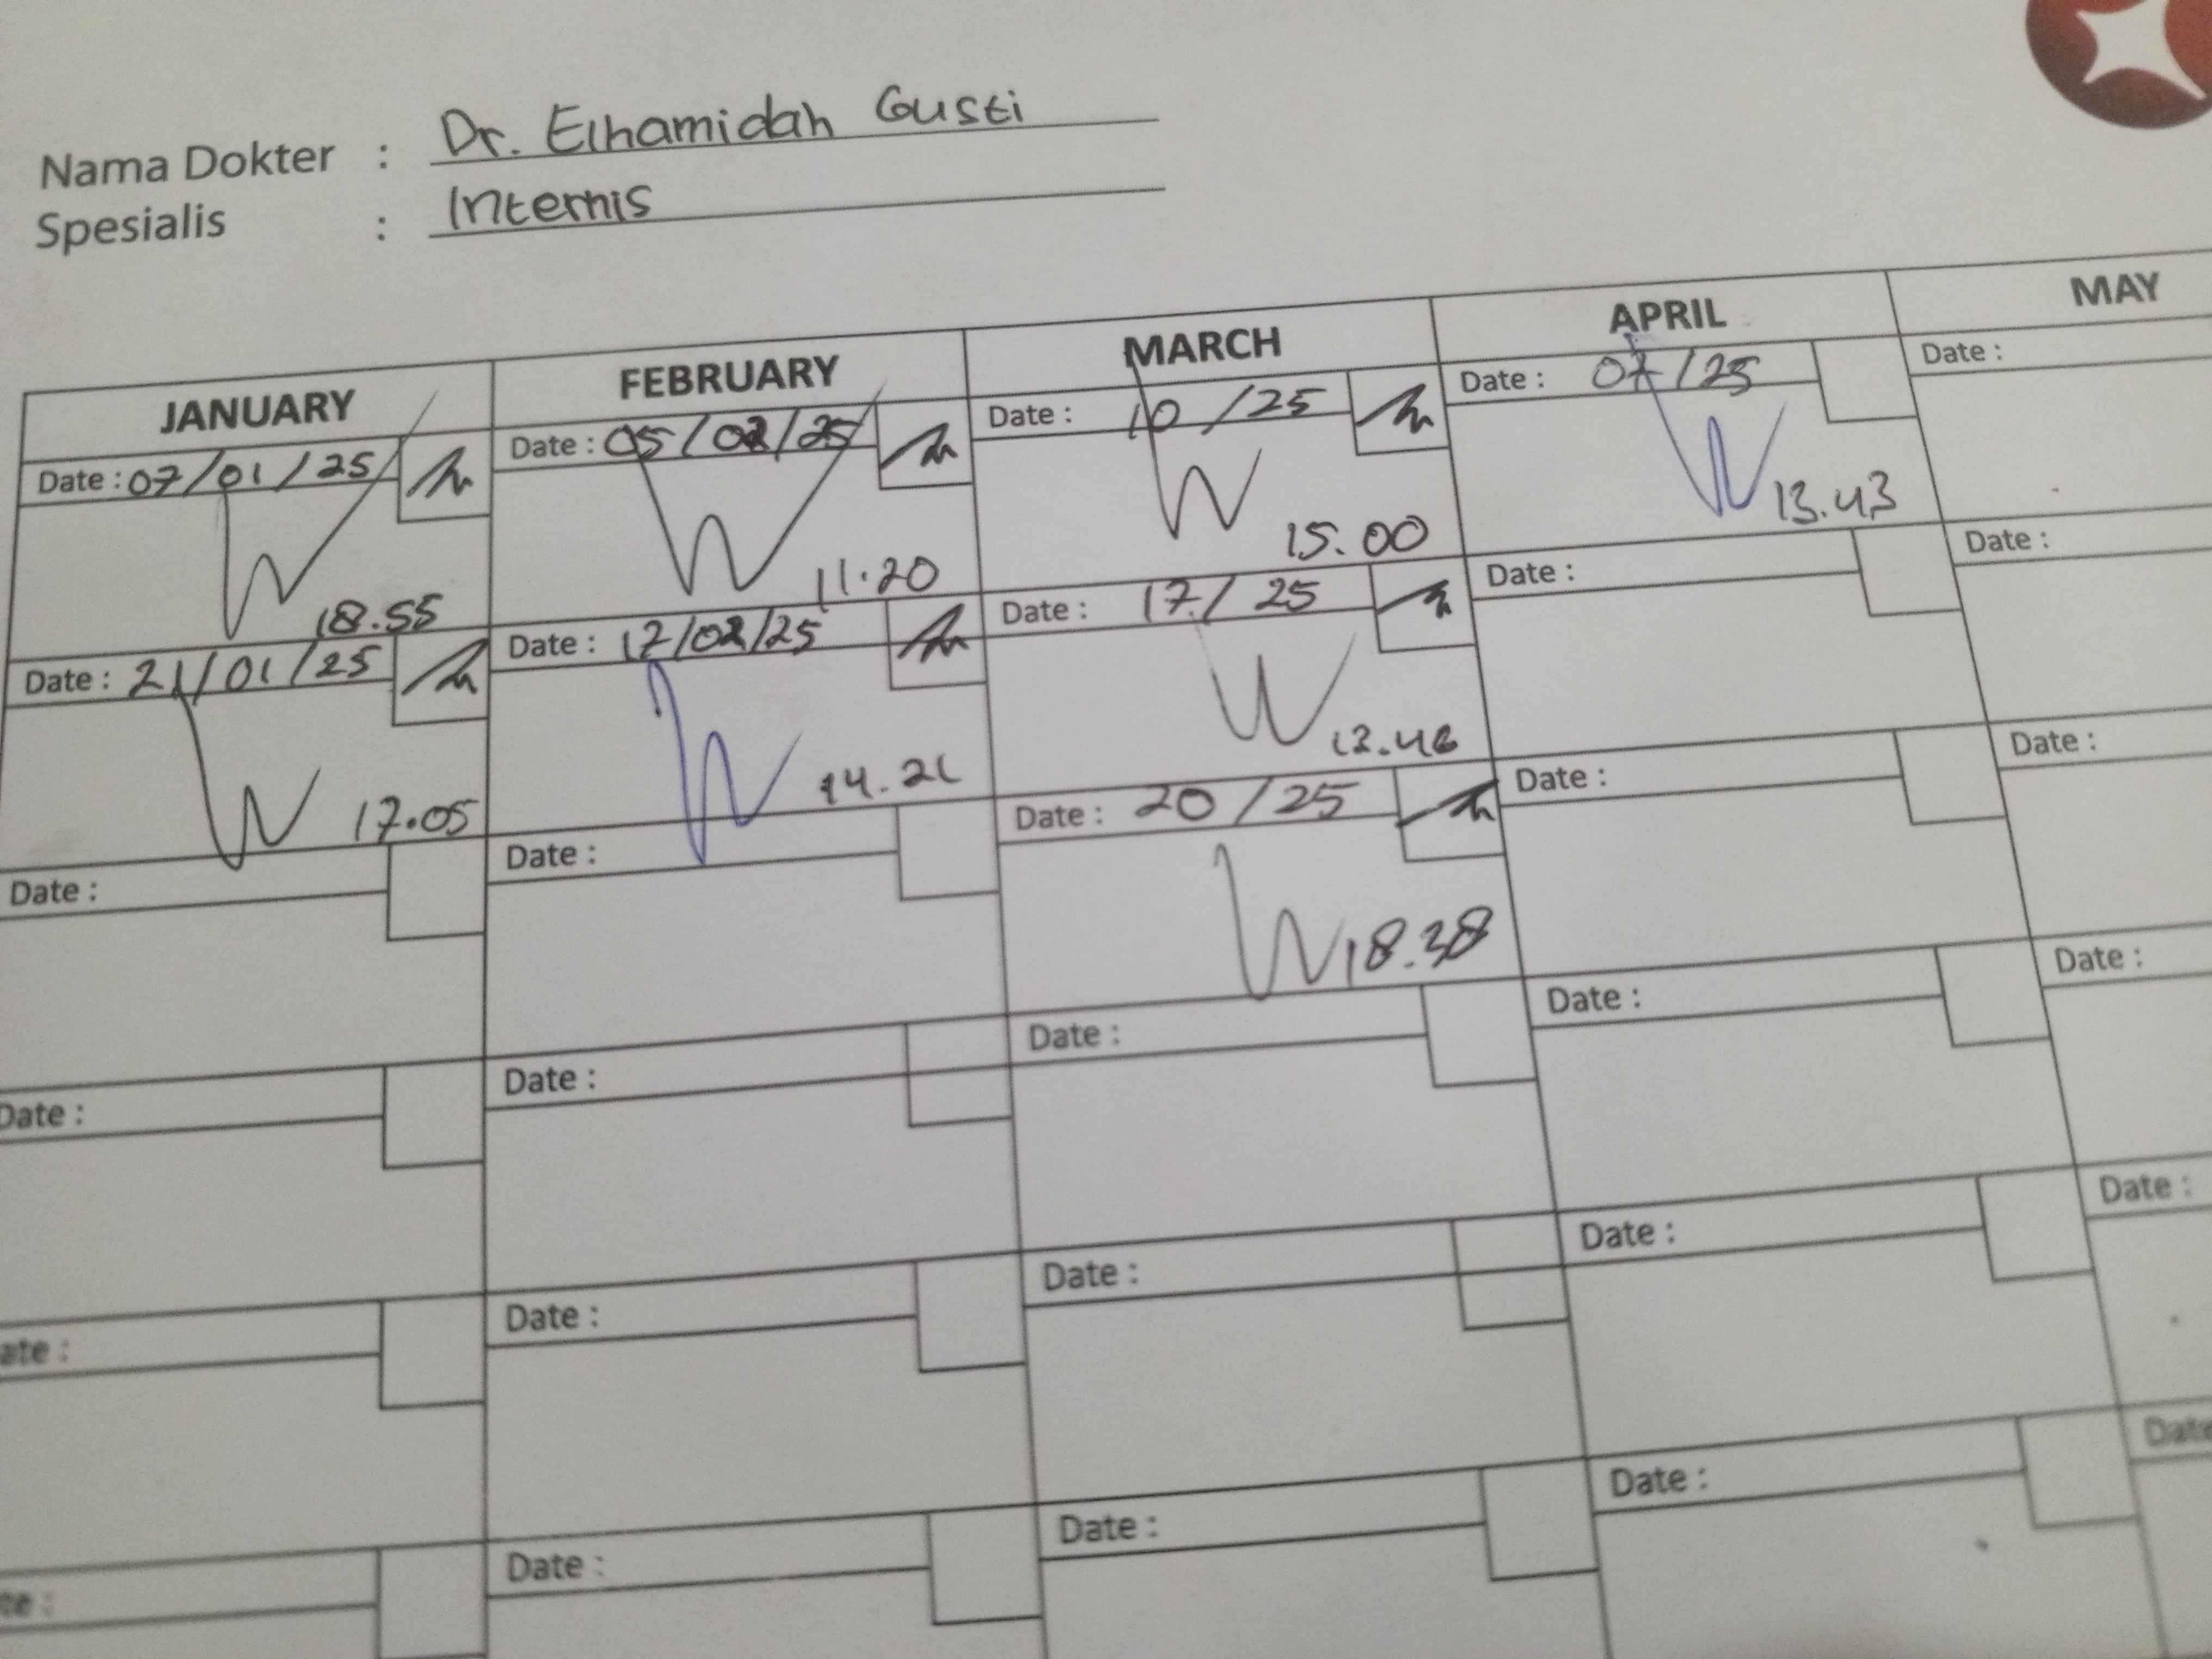 Nama Dokter : Dr. Elhamidah Gusti
Spesialis : Internis
JANUARY FEBRUARY MARCH APRIL MAY
Date : 07/01/25 Date : 05/02/25 Date : 10 /25 Date : 07 /25 Date :
18.55 11.20 15.00 13.43
Date : 21/01/25 Date : 17/02/25 Date : 17/ 25 Date : Date :
17.05 14.21 13.46
Date : Date : Date : 20 /25 Date : Date :
18.38
Date : Date : Date : Date : Date :
ate : Date : Date : Date : Date :
te : Date : Date : Date : Date